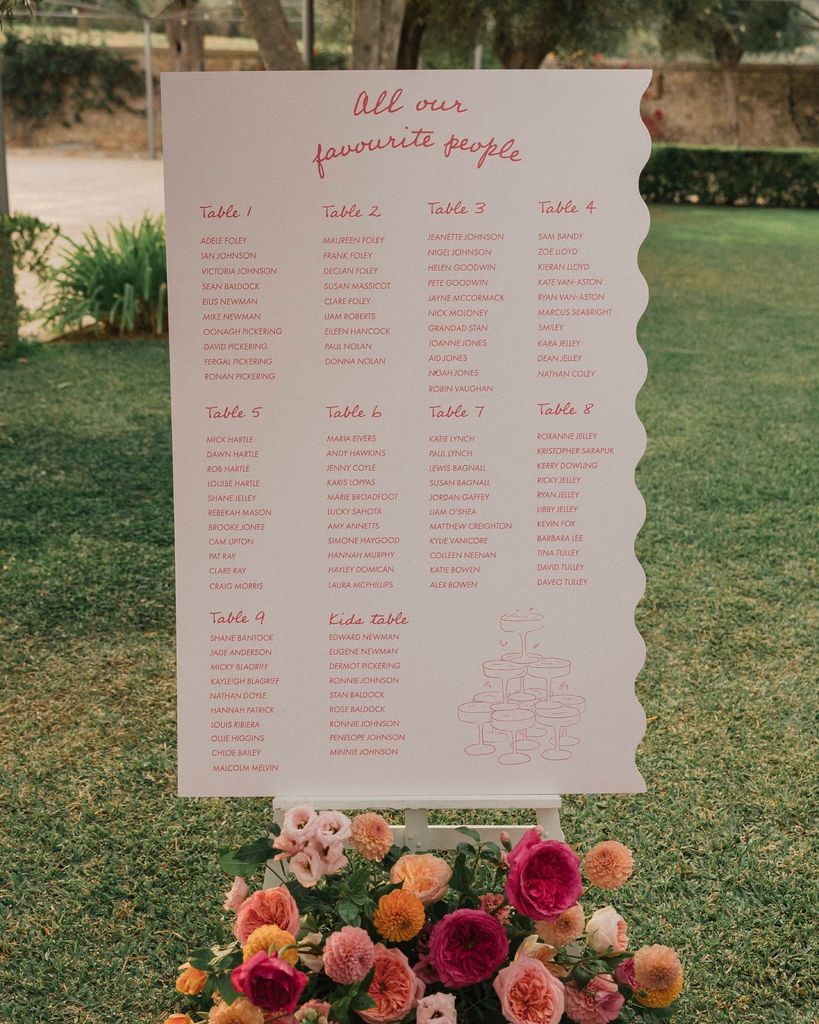 All our
favourite people
Table 1
ADELE FOLEY
IAN JOHNSON
VICTORIA JOHNSON
SEAN BALDOCK
EILIS NEWMAN
MIKE NEWMAN
OONAGH PICKERING
DAVID PICKERING
FERGAL PICKERING
RONAN PICKERING
Table 2
MAUREEN FOLEY
FRANK FOLEY
DECLAN FOLEY
SUSAN MASSICOT
CLARE FOLEY
LIAM ROBERTS
EILEEN HANCOCK
PAUL NOLAN
DONNA NOLAN
Table 3
JEANETTE JOHNSON
NIGEL JOHNSON
HELEN GOODWIN
PETE GOODWIN
JAYNE MCCORMACK
NICK MOLONEY
GRANDAD STAN
JOANNE JONES
AID JONES
NOAH JONES
ROBIN VAUGHAN
Table 4
SAM BANDY
ZOE LLOYD
KIERAN LLOYD
KATE VAN-ASTON
RYAN VAN-ASTON
MARCUS SEABRIGHT
SMILEY
KARA JELLEY
DEAN JELLEY
NATHAN COLEY
Table 5
MICK HARTLE
DAWN HARTLE
ROB HARTLE
LOUISE HARTLE
SHANE JELLEY
REBEKAH MASON
BROOKE JONES
CAM UPTON
PAT RAY
CLARE RAY
CRAIG MORRIS
Table 6
MARIA EIVERS
ANDY HAWKINS
JENNY COYLE
KARIS LOPPAS
MARIE BROADFOOT
LUCKY SAHOTA
AMY ANNETTS
SIMONE HAYGOOD
HANNAH MURPHY
HAYLEY DOMICAN
LAURA MCPHILLIPS
Table 7
KATIE LYNCH
PAUL LYNCH
LEWIS BAGNALL
SUSAN BAGNALL
JORDAN GAFFEY
LIAM O'SHEA
MATTHEW CREIGHTON
KYLIE VANICORE
COLLEEN NEENAN
KATIE BOWEN
ALEX BOWEN
Table 8
ROXANNE JELLEY
KRISTOPHER SARAPUK
KERRY DOWLING
RICKY JELLEY
RYAN JELLEY
LIBBY JELLEY
KEVIN FOX
BARBARA LEE
TINA TULLEY
DAVID TULLEY
DAVEO TULLEY
Table 9
SHANE BANTOCK
JADE ANDERSON
MICKY BLAGRIFF
KAYLEIGH BLAGRIFF
NATHAN DOYLE
HANNAH PATRICK
LOUIS RIBIERA
OLLIE HIGGINS
CHLOE BAILEY
MALCOLM MELVIN
Kids table
EDWARD NEWMAN
EUGENE NEWMAN
DERMOT PICKERING
RONNIE JOHNSON
STAN BALDOCK
ROSE BALDOCK
RONNIE JOHNSON
PENELOPE JOHNSON
MINNIE JOHNSON